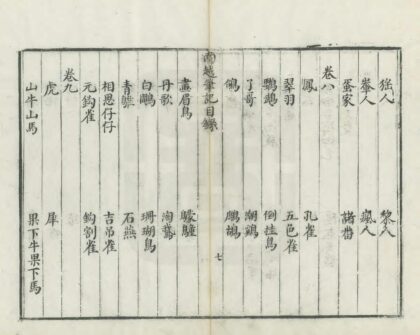 猺人 黎人
輋人 瘋人
蛋家 諸番
卷八
鳳 孔雀
翠羽 五色雀
鸚鵡 倒挂鳥
了哥 潮鷄
鴿 鷓鴣
南越筆記目錄 七
畫眉鳥
丹歌 淘鵞
白鷴 珊瑚鳥
青 石燕
相思仔仔 吉吊雀
元鈎雀 鈎割雀
卷九
虎 犀
山牛山馬 果下牛果下馬